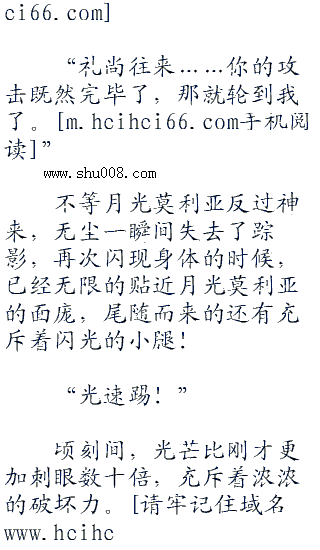 ci66.com]
“礼尚往来……你的攻
击既然完毕了，那就轮到我
了。[m.hcihci66.com手机阅
读]”
www.shu008.com
不等月光莫利亚反过神
来，无尘一瞬间失去了踪
影，再次闪现身体的时候，
已经无限的贴近月光莫利亚
的面庞，尾随而来的还有充
斥着闪光的小腿！
“光速踢！”
顷刻间，光芒比刚才更
加刺眼数十倍，充斥着浓浓
的破坏力。[请牢记住域名
www.hcihc